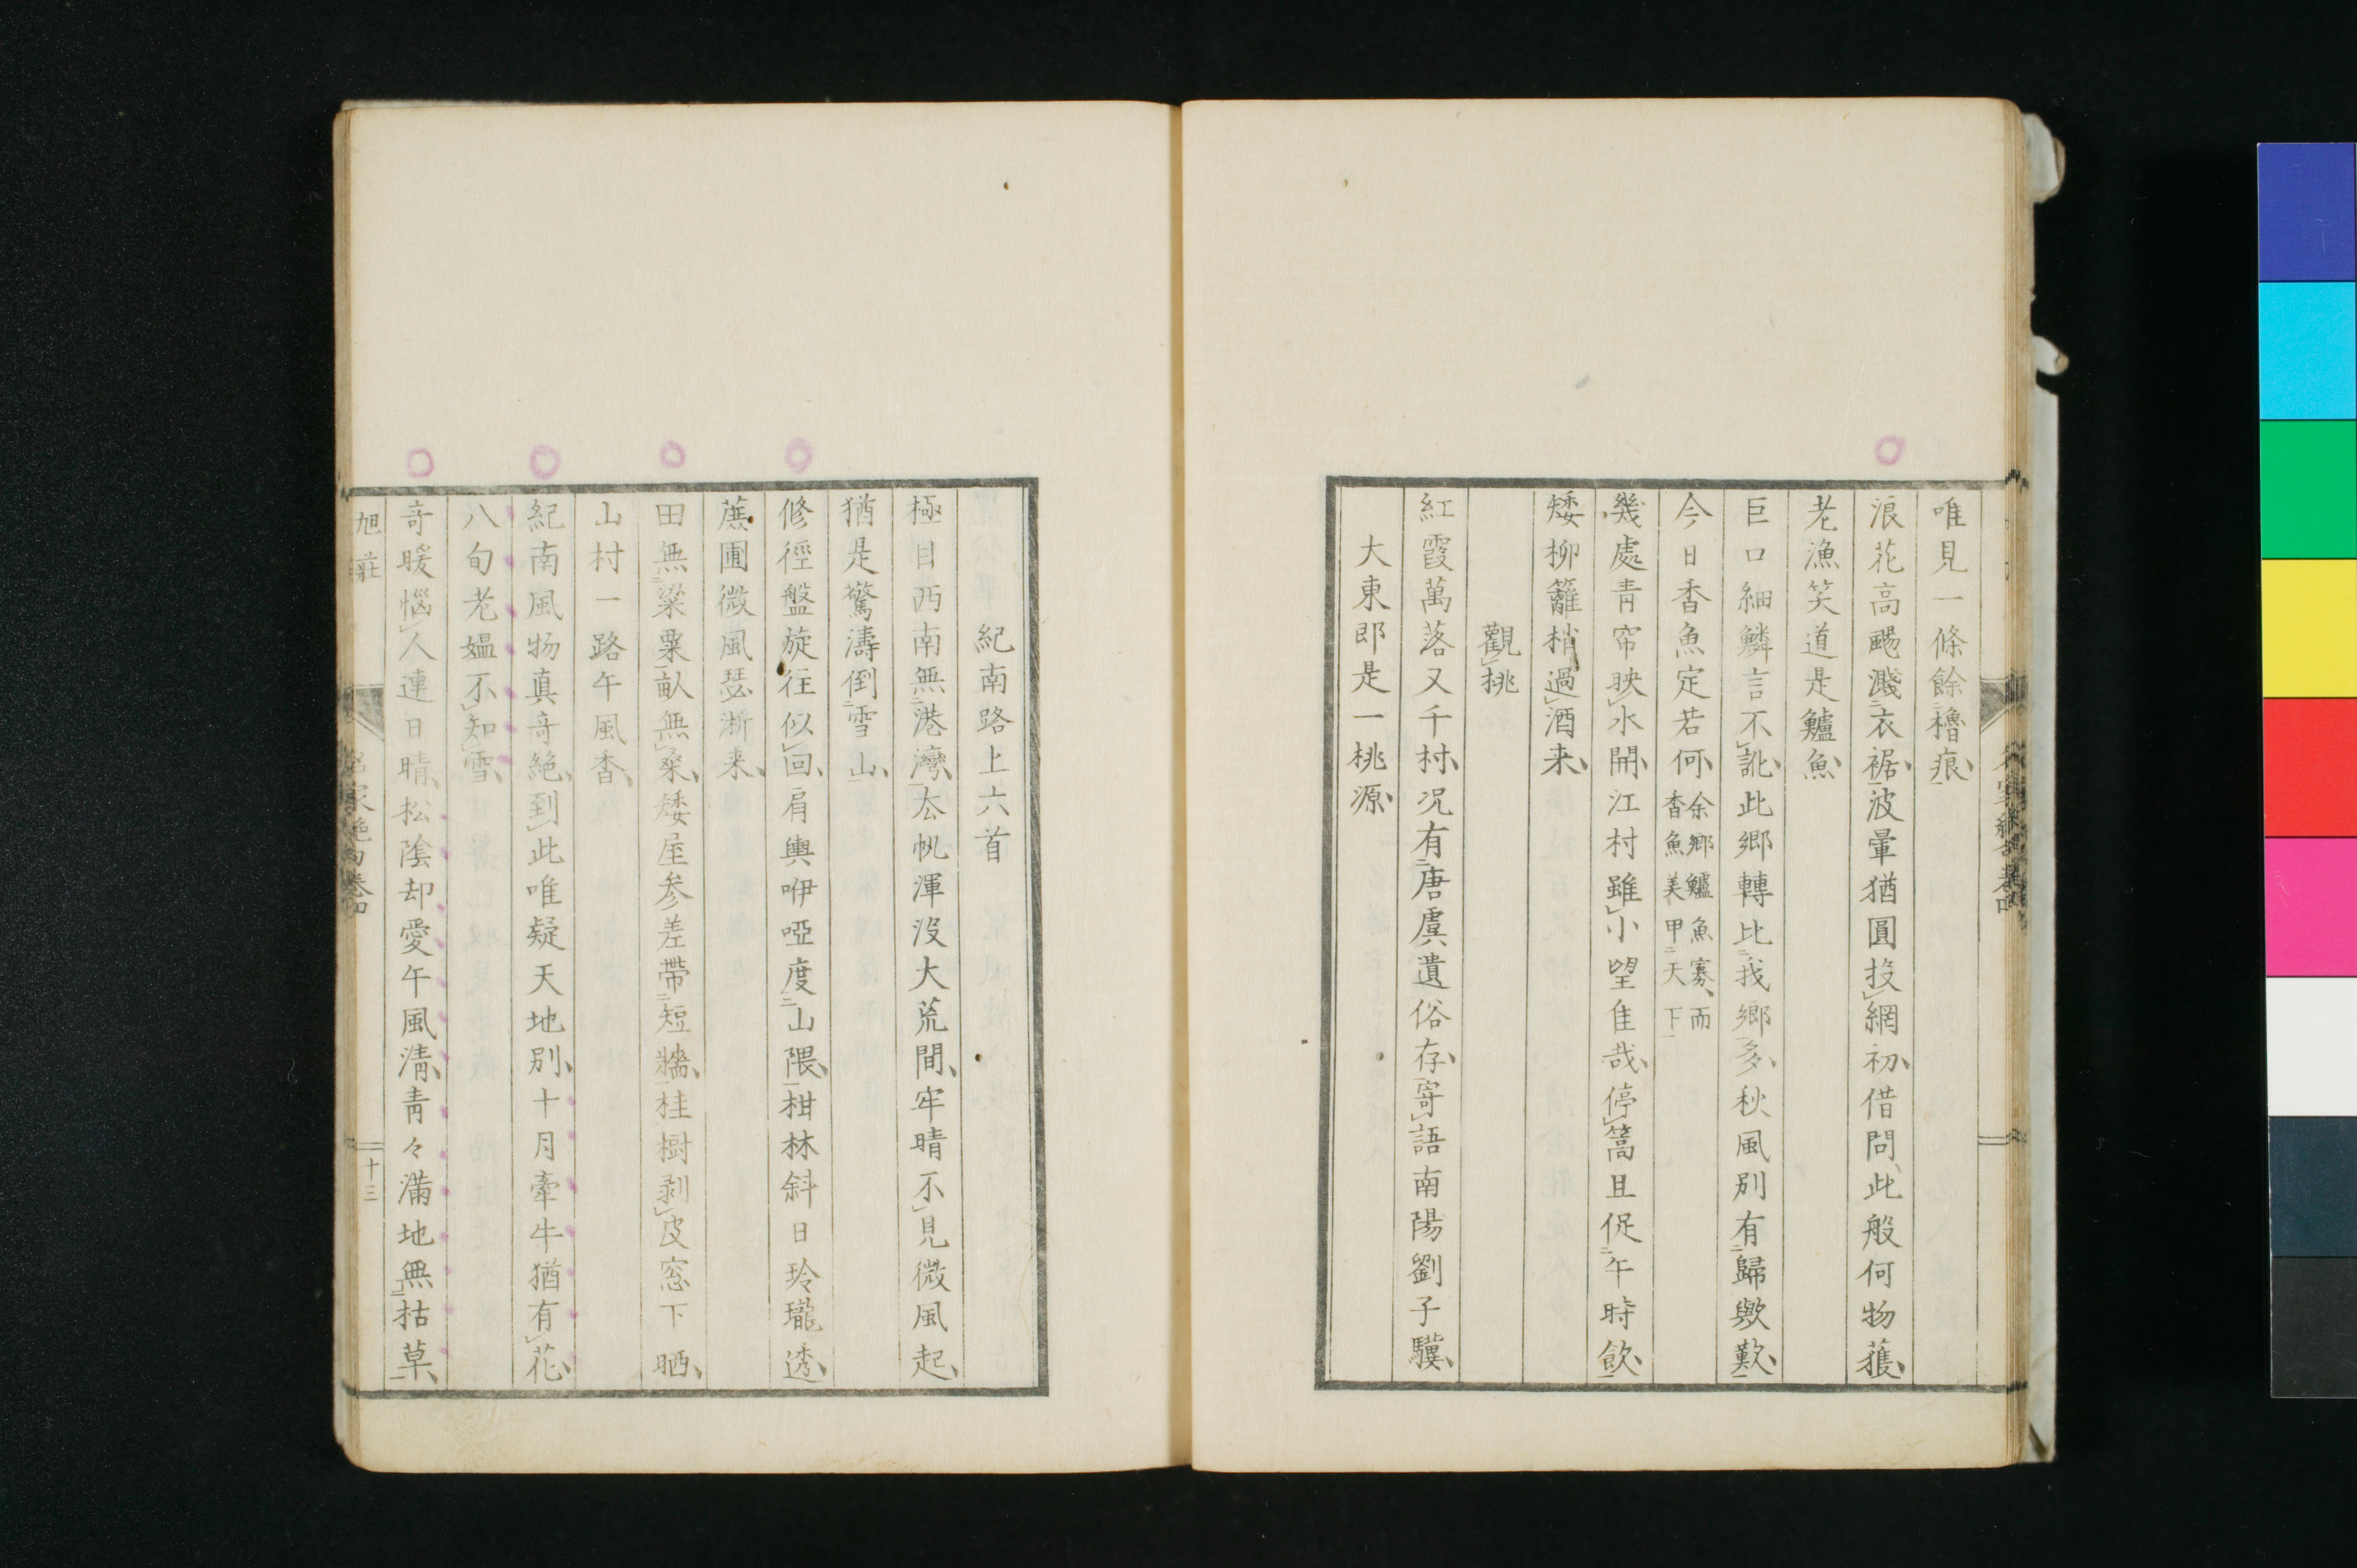 唯見一條餘櫓痕
浪花高颺濺衣裾波暈猶圓投網初借問此般何物獲
老漁笑道是鱸魚
巨口細鱗言不訛此鄉轉比我鄉多秋風別有歸歟歎
今日香魚定若何余鄉鱸魚寡而
香魚美甲天下
幾處青帘映水開江村雖小望佳哉停篙且促午時飲
矮柳籬梢過酒来
觀桃
紅霞萬落又千村况有唐虞遺俗存寄語南陽劉子驥
大東即是一桃源
紀南路上六首
極目西南無港灣去帆渾没大荒間牢晴不見微風起
猶是驚濤倒雪山
修徑盤旋往似回肩輿咿啞度山隈柑林斜日玲瓏透
蔗圃微風瑟淅来
田無粱粟畝無桑矮屋参差帶短牆桂樹剥皮窓下晒
山村一路午風香
紀南風物真竒絶到此唯疑天地別十月牽牛猶有花
八旬老媼不知雪
竒暖惱人連日晴松陰却愛午風清青々滿地無枯草
旭莊
家絶句卷四
十三